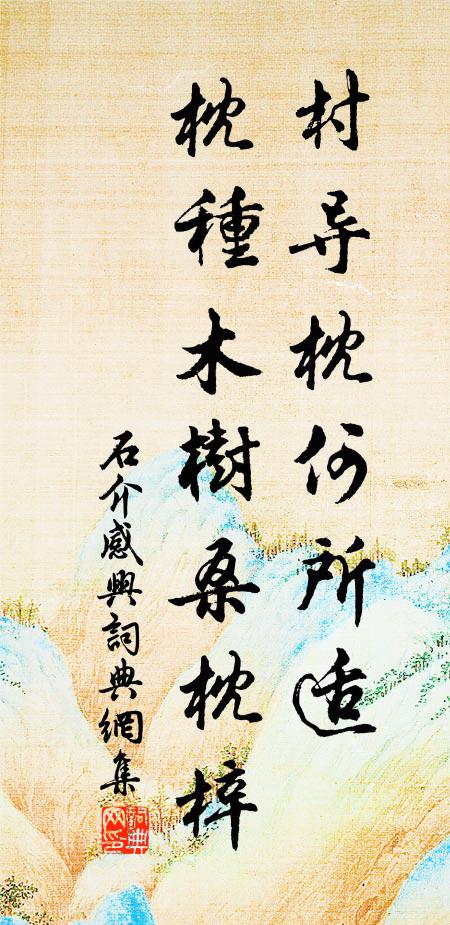 村导枕何所适
枕種木樹桑枕梓
石介感興詞典網集
詞典网印